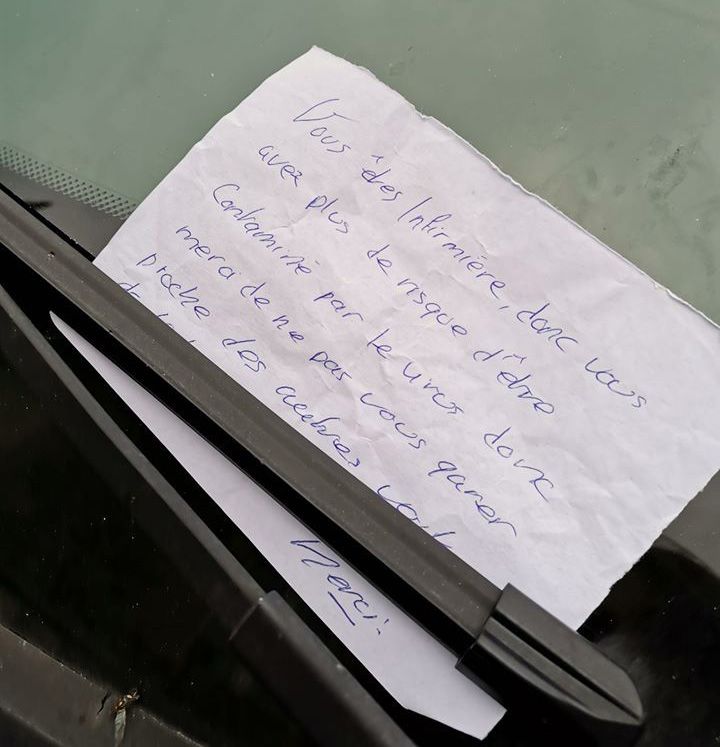 Vous êtes Infirmière, donc vous
avez plus de risque d'être
Contaminé par le virus donc
merci de ne pas vous garer
proche des autres
Merci.